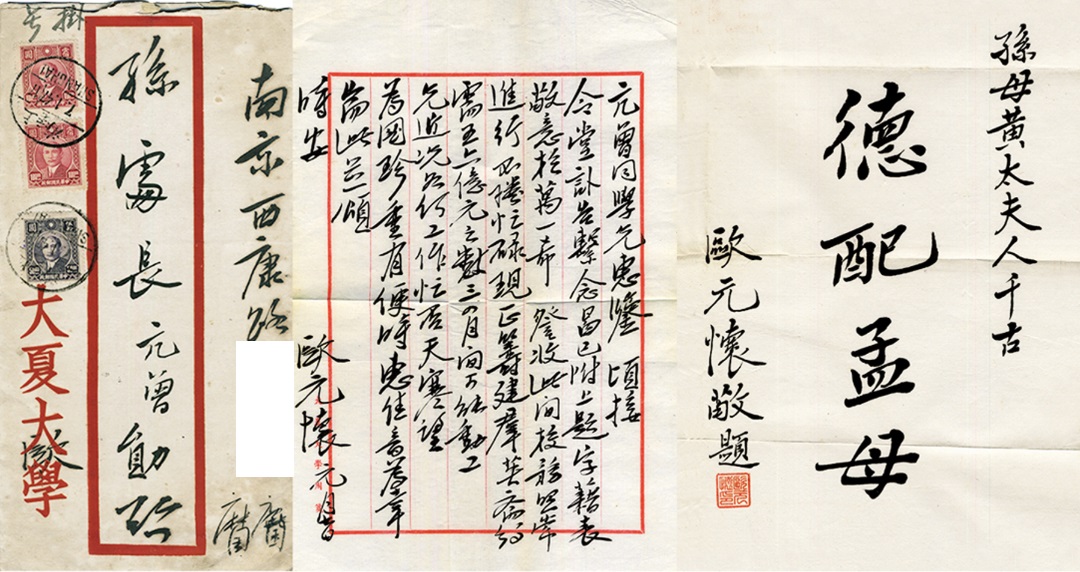 南京西康路
孫處長元曾勛啟
掛号
大夏大學
歐
元曾同學兄惠鑒 頃接
令堂訃告繫念曷已附上題字藉表
敬意於萬一希 詧收此間校務照常
進行忙碌現正籌建群英齋約
需五六億元之數三四月間可能動工
兄近況如何工作忙否天寒望
為國珍重有便時惠佳音
耑此並頌
時安
歐元懷 元月
孫母黃太夫人千古
德配孟母
歐元懷敬題